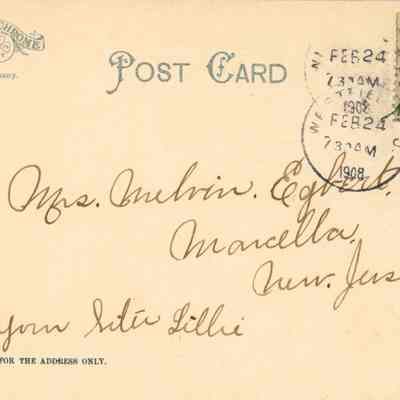 CHROME
POST CARD
FEB 24
7 30 AM
1908
FEB 24
7 30 AM
1908
Mrs. Melvin. Egbert.
Marcella.
New. Jers
Yourn Siter Lillie
FOR THE ADDRESS ONLY.